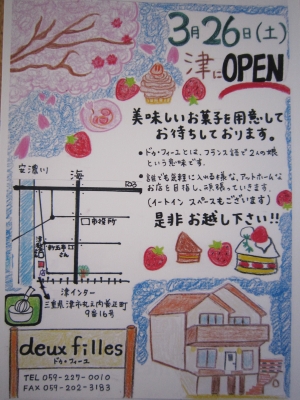 3月26日(土)
津にOPEN
美味しいお菓子を用意して
お待ちしております。
・ドゥ・フィーユとは、フランス語で2人の娘
という意味です。
・誰でも気軽に入れる様な、アットホームな
お店を目指し、頑張っていきます。
(イートイン スペースもございます)
是非お越し下さい!!
安濃川
海
R23
市役所
さん
店
津インター
三重県津市丸之内養正町
9番16号
deux filles
ドゥ・フィーユ
TEL 059-227-0010
FAX 059-202-3183